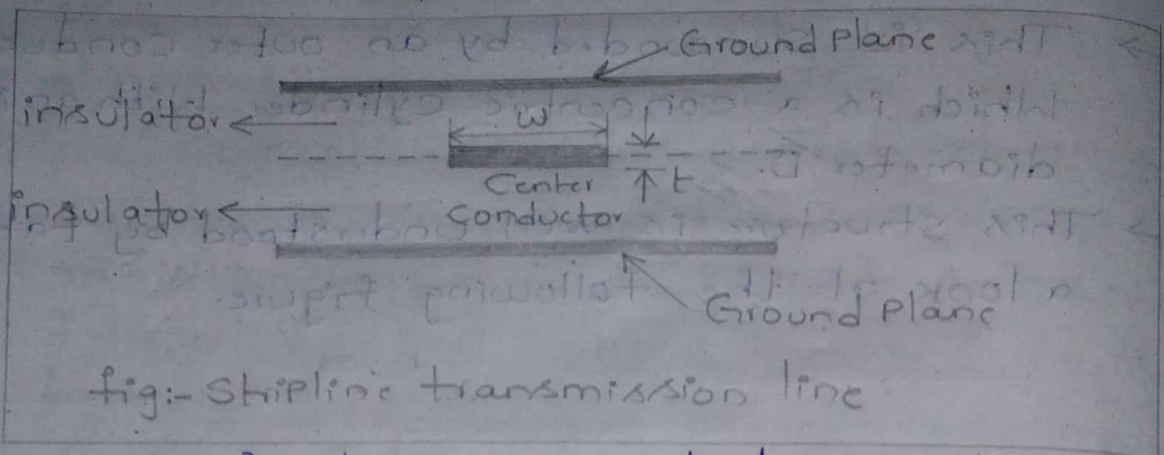 Ground Plane
insulator
w
t
Center
Conductor
insulator
Ground Plane
fig:- Stripline transmission line